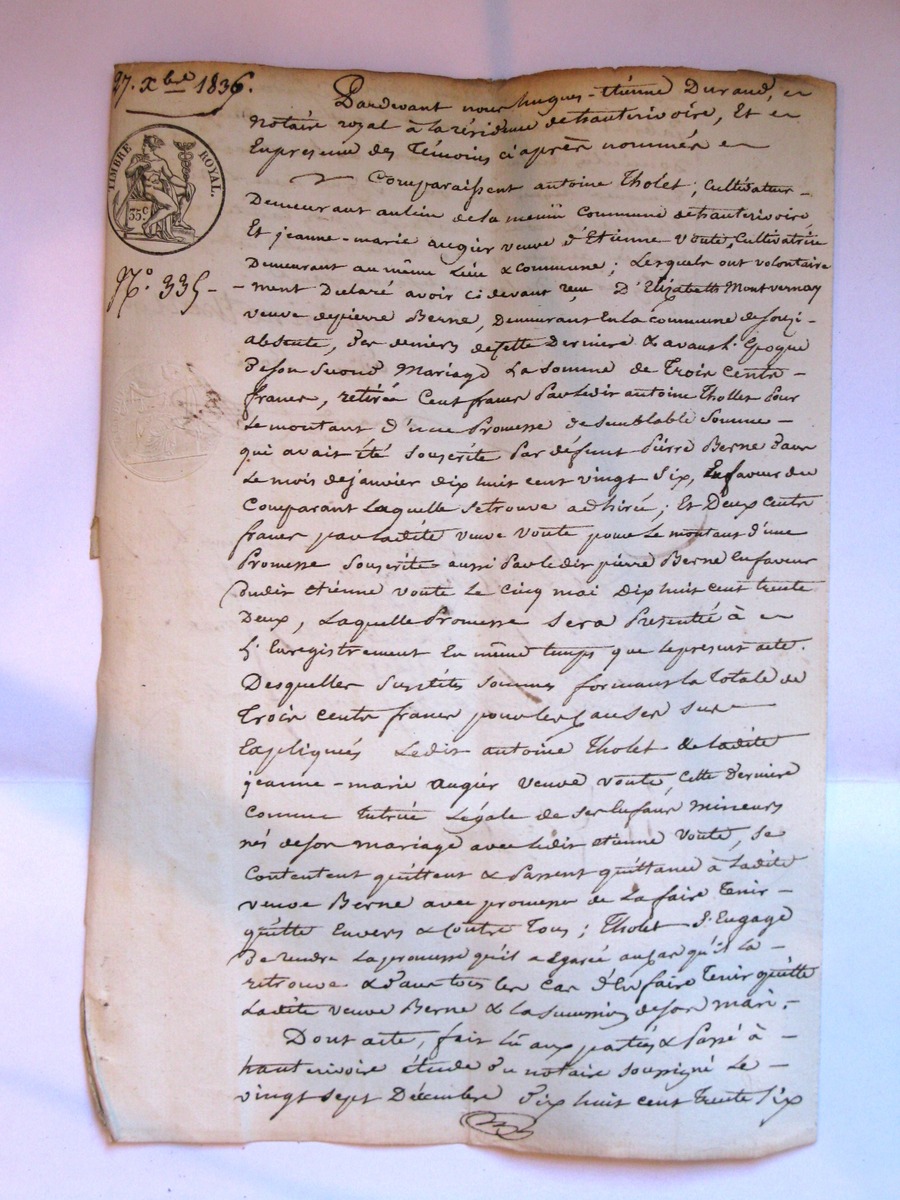 27. Xbre 1836.
TIMBRE ROYAL.
35c
N° 335 -
Pardevant nous hugues-étienne Durand,
Notaire royal à la résidence de hauterivoire, Et
En presence des Témoins ci après nommés
Comparaissent antoine Tholet, Cultivateur -
Demeurant au lieu de la même Commune de hauterivoire,
Et jeanne-marie augier veuve d'Etienne Voute, Cultivatrice
Demeurant au même Lieu & commune; Lesquels ont volontaire
- ment Déclaré avoir ci devant reçu D'Elizabeth Montvernay
veuve de pierre Berne, Demeurant En la commune de souzi -
absente, des deniers de cette Dernière & avant L'Epoque
De son Second Mariage La Somme de Trois Cents -
francs, retirée Cent francs Par Ledit antoine Thollet Pour
Le montant d'une Promesse de semblable Somme -
qui avait été souscrite Par défunt Pierre Berne Dans
Le mois de janvier dix huit cent vingt Six, En faveur du
Comparant Laquelle se trouve adhirée; Et Deux Cents
francs par Ladite veuve Voute pour Le montant d'une
Promesse Souscrite aussi Par ledit pierre Berne En faveur
dudit étienne Voute Le Cinq mai Dix huit Cent trente
Deux, Laquelle Promesse Sera Présentée à
L'Enregistrement En même temps que le present acte.
Desquelles Susdites Sommes formant La Totale de
Trois Cents francs pour les Causes Sus
Expliquées Ledit antoine Tholet & Ladite
jeanne-marie augier veuve Voute, Cette Dernière
Comme Tutrice Légale de Ses Enfans mineurs
nés de son mariage avec Ledit étienne Voute, Se
Contentent quittent & Passent quittance à Ladite
veuve Berne avec promesse de La faire Tenir -
quitte Envers & Contre Tous; Tholet S'Engage
De rendre La promesse qu'il a Egarée au cas qu'il La -
retrouve & Dans tous les Cas d'En faire Tenir quitte
Ladite veuve Berne & La succession de son mari. -
Dont acte, fait Lû aux parties & Passé à -
hauterivoire étude du notaire soussigné Le -
vingt sept Décembre Dix huit cent trente Six